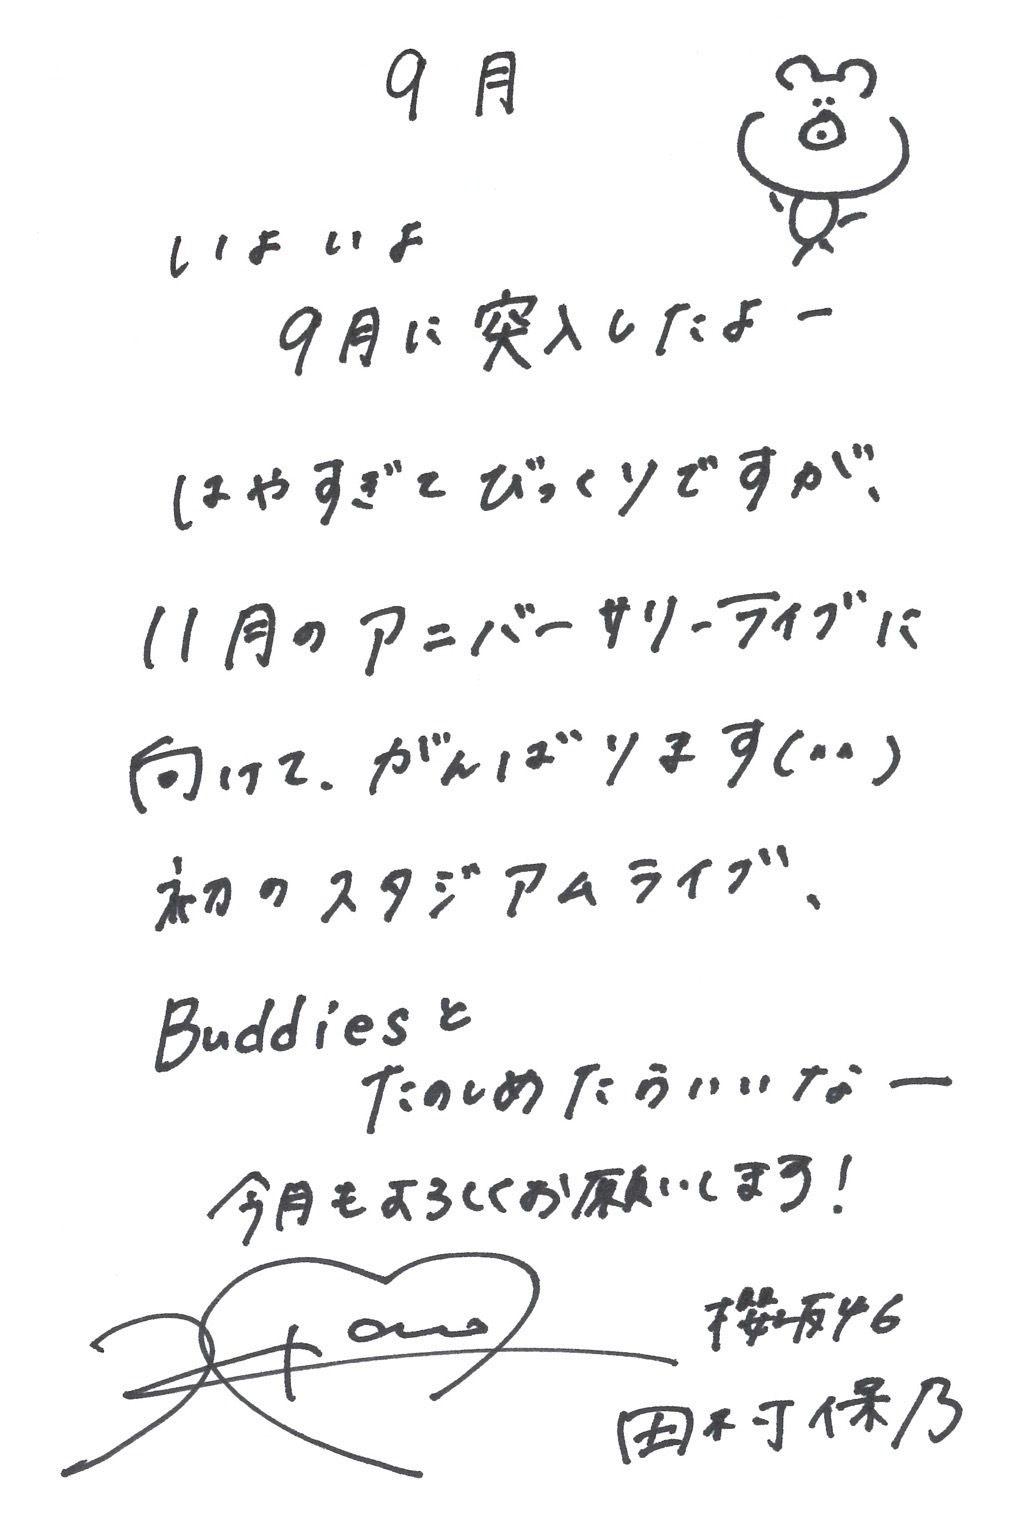 9月
いよいよ
9月に突入したよー
はやすぎてびっくりですが、
11月のアニバーサリーライブに
向けて、がんばります(^^)
初のスタジアムライブ、
Buddiesと
たのしめたらいいなー
今月もよろしくお願いします!
Hono
櫻坂46
田村保乃